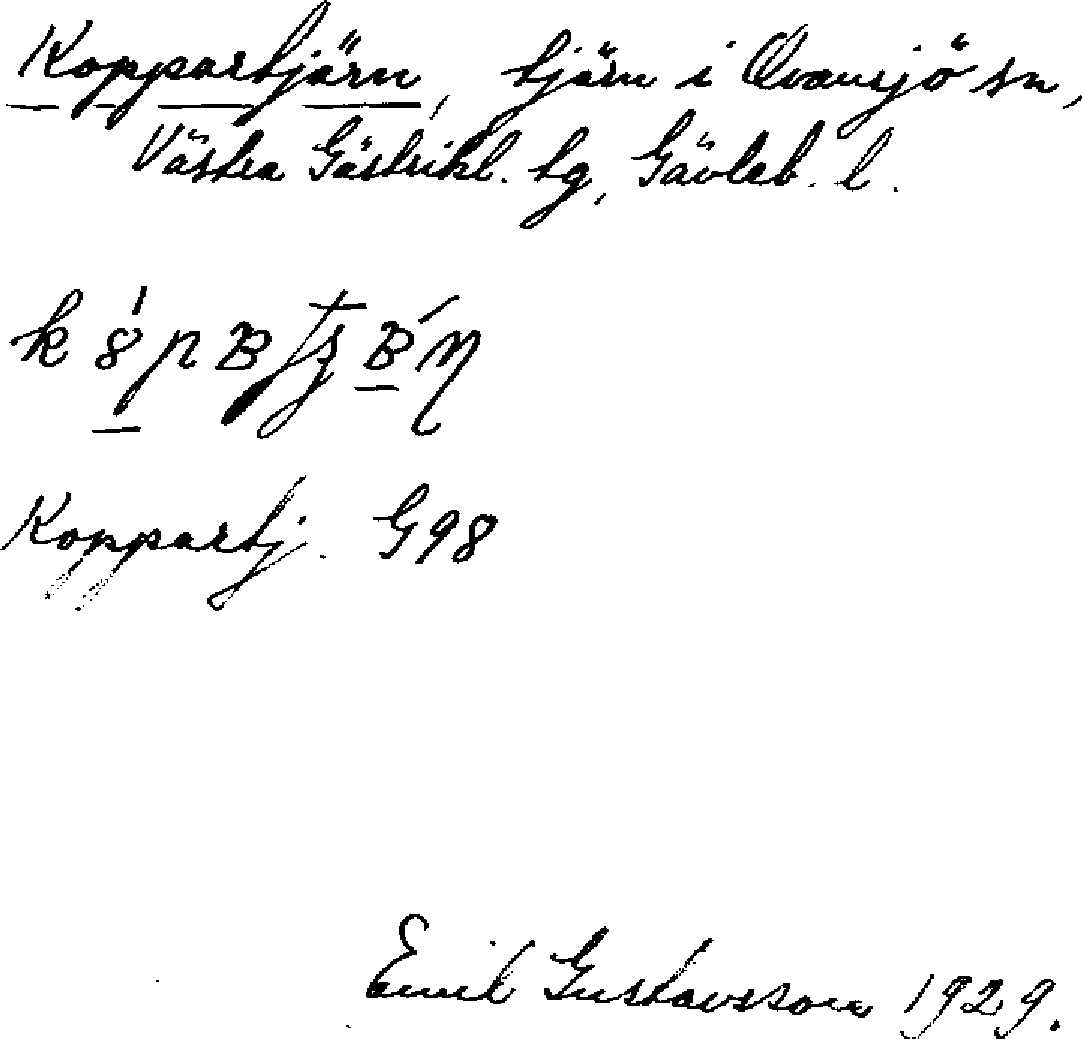 Koppartjärn, tjärn i Ovansjö sn,
Västra Gästrikl. tg, Gävleb. l.
Koppartj. G98
Emil Gustavsson 1929.